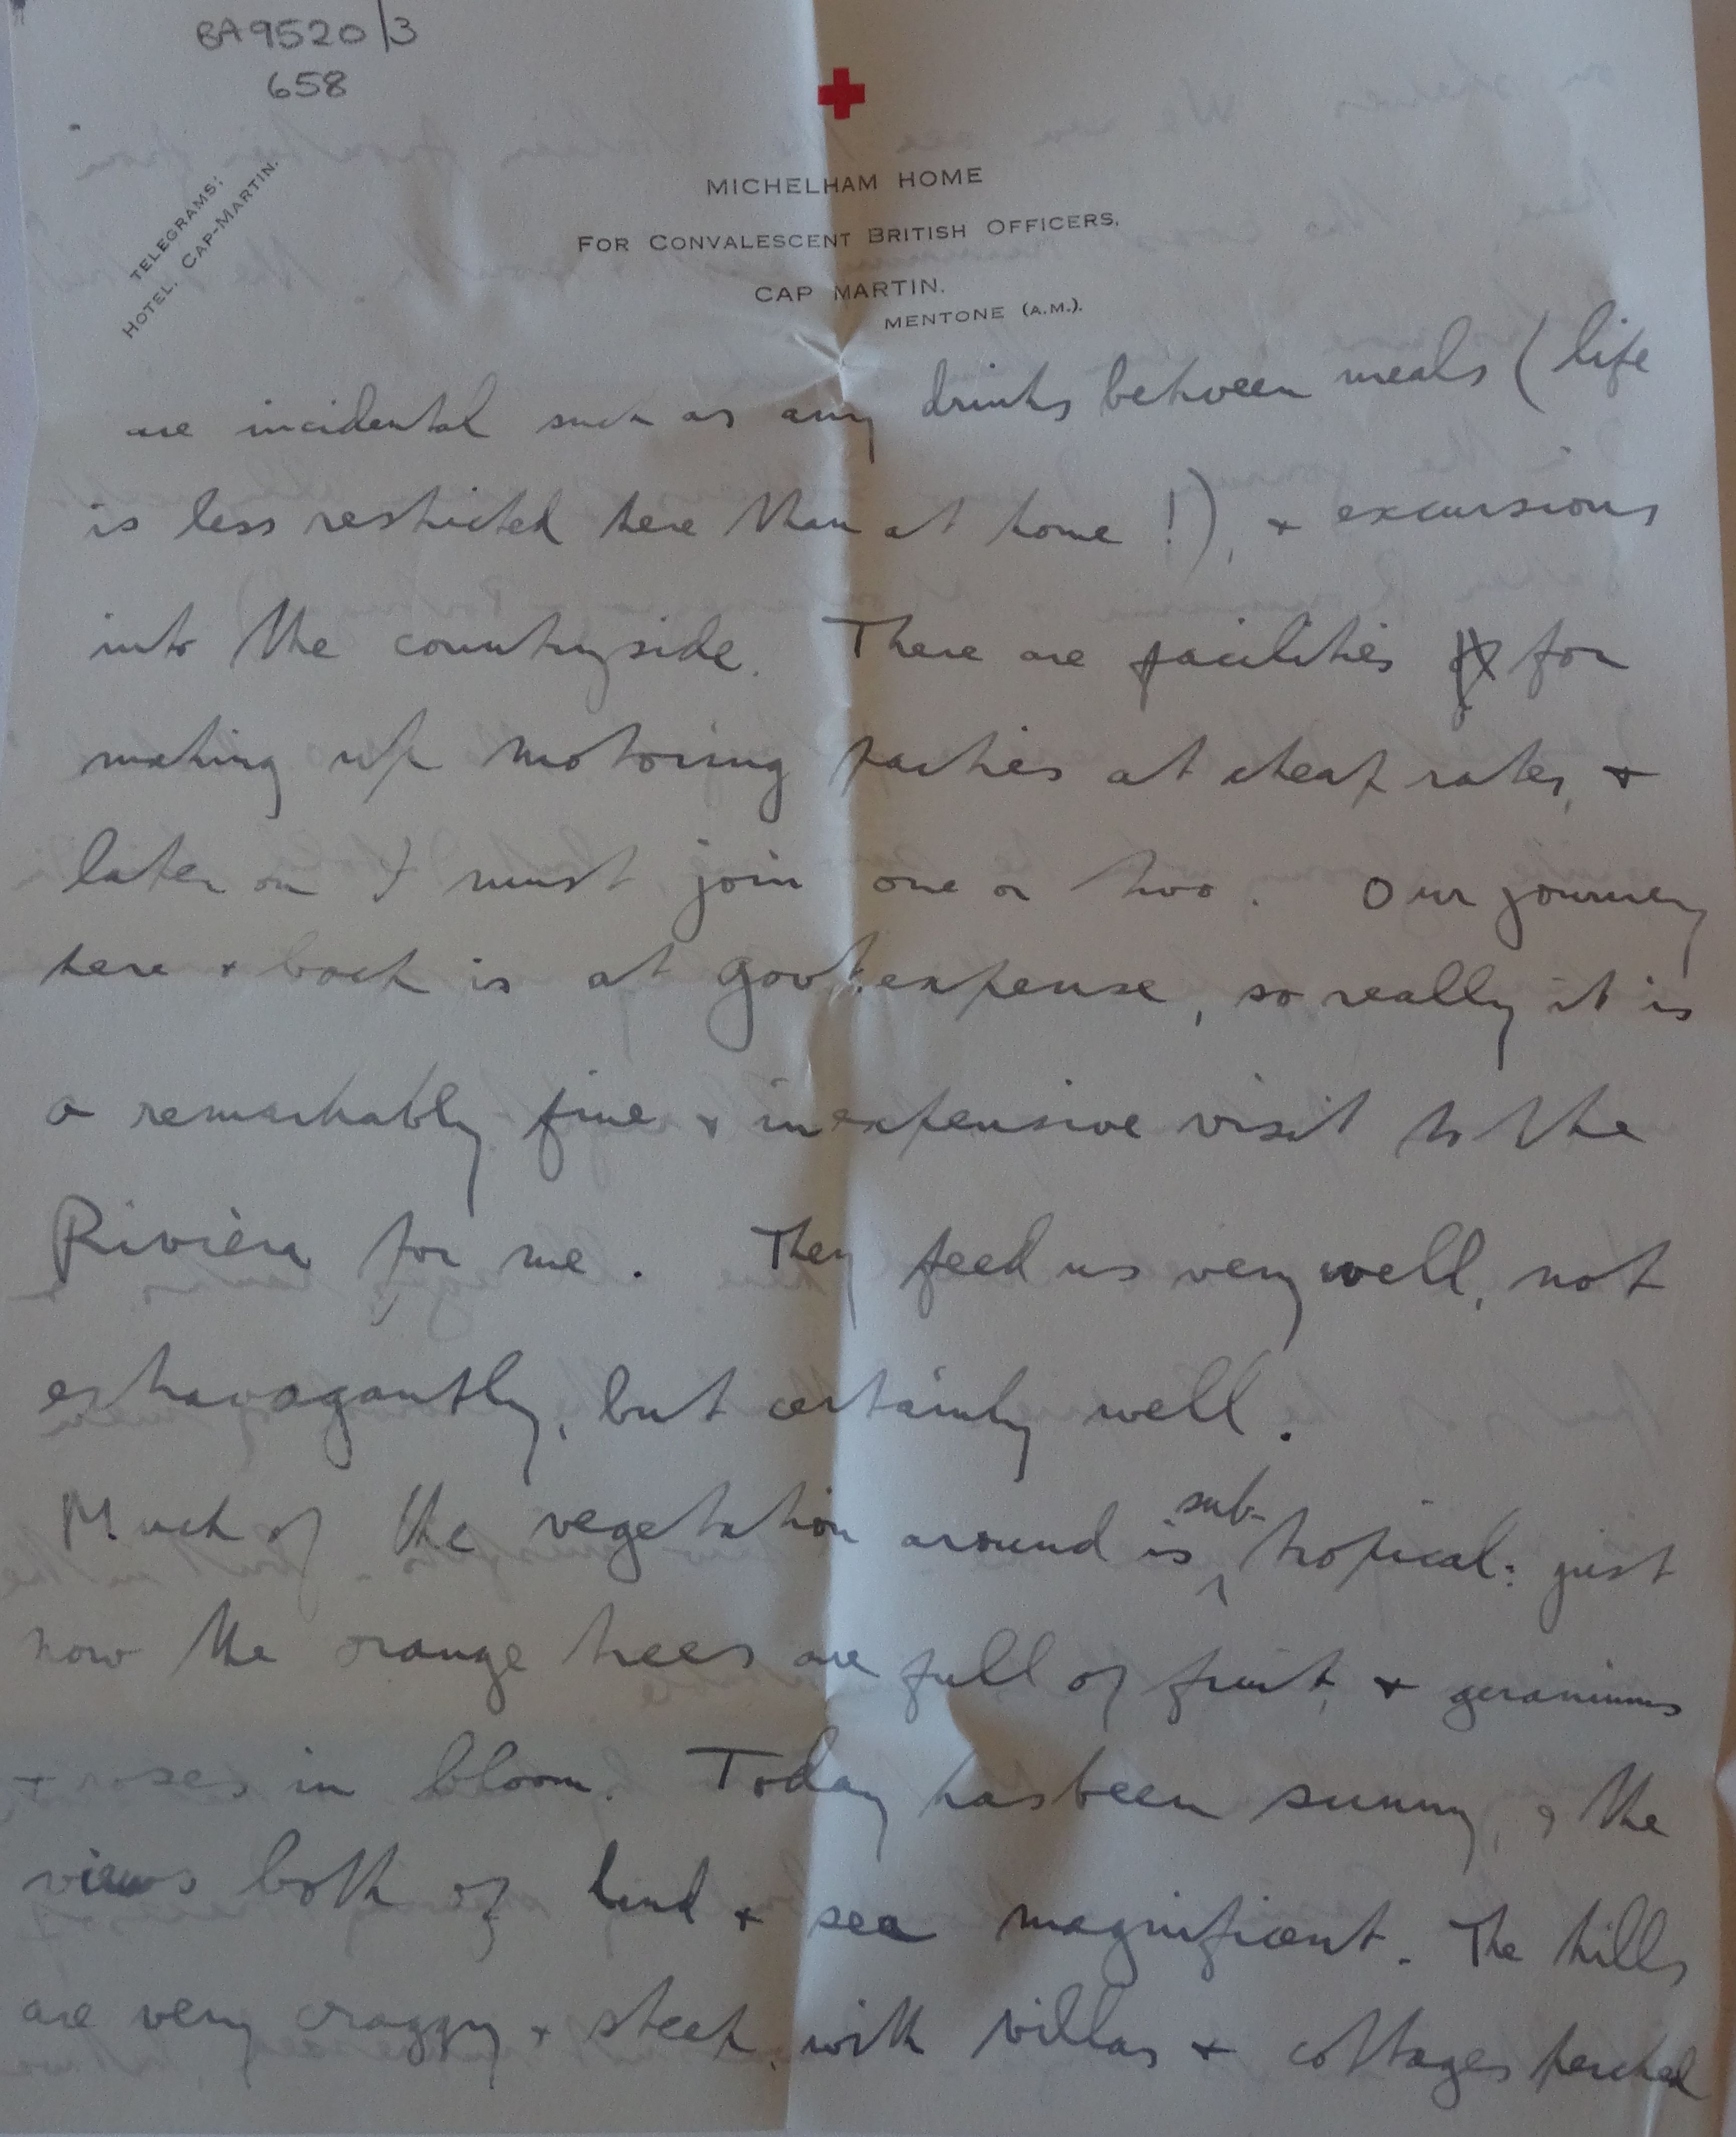 BA9520/3
658
TELEGRAMS:
HOTEL, CAP-MARTIN.
MICHELHAM HOME
FOR CONVALESCENT BRITISH OFFICERS,
CAP MARTIN.
MENTONE (A.M.).
are incidental such as any drinks between meals (life
is less restricted here than at home!), + excursions
into the countryside. There are facilities for
making up motoring parties at cheap rates, +
later on I must join one or two. Our journey
here + back is at govt. expense, so really it is
a remarkably fine + inexpensive visit to the
Rivièra for me. They feed us very well, not
extravagantly, but certainly well.
Much of the vegetation around is sub-tropical: just
now the orange trees are full of fruit, + geraniums
+ roses in bloom. Today has been sunny, & the
views both of land + sea magnificent. The hills
are very craggy + steep, with villas + cottages perched